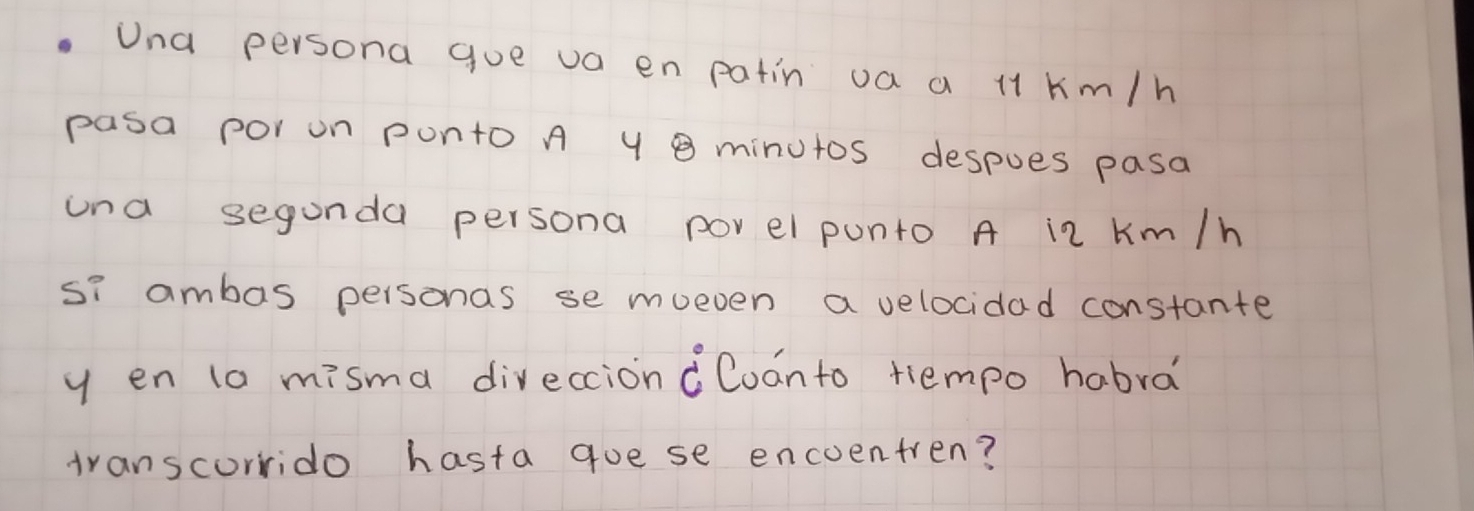 • Una persona que va en patín va a 11 Km/h
pasa por un punto A y 8 minutos despues pasa
una segunda persona por el punto A 12 Km/h
si ambas personas se mueven a velocidad constante
y en la misma dirección ¿Cuánto tiempo habrá
transcurrido hasta que se encuentren?